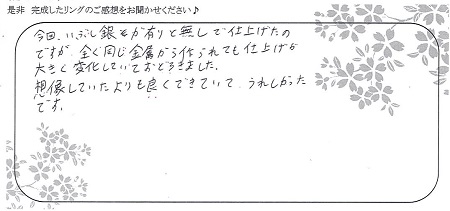 是非 完成したリングのご感想をお聞かせください♪
今回、いぶし銀を有りと無しで仕上げたの
ですが、全く同じ金属から作られても仕上げが
大きく変化していておどろきました。
想像していたよりも良くできていて、うれしかった
です。